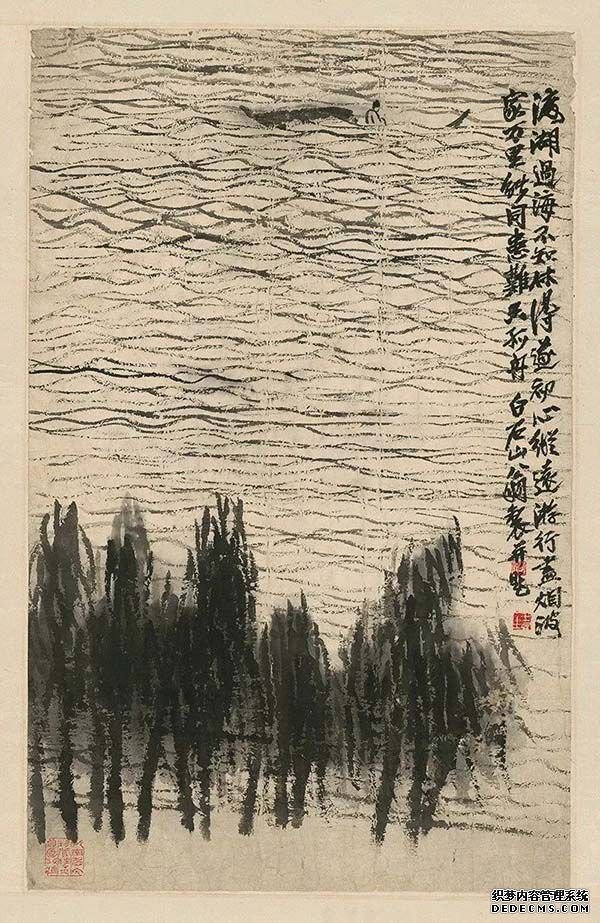 渡湖過海不知休得遂初心縱遠游行盡烟波
家万里能同患難只孤舟白石山翁製并題
织梦内容管理系统
DEDECMS.COM